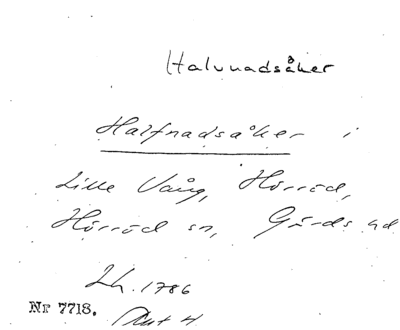 Halvnadsåker
Halfnadsåker i
Lille Vång, Hörröd,
Hörröd sn, Gärds hd
Lh. 1786
Nr 7718. Akt 4